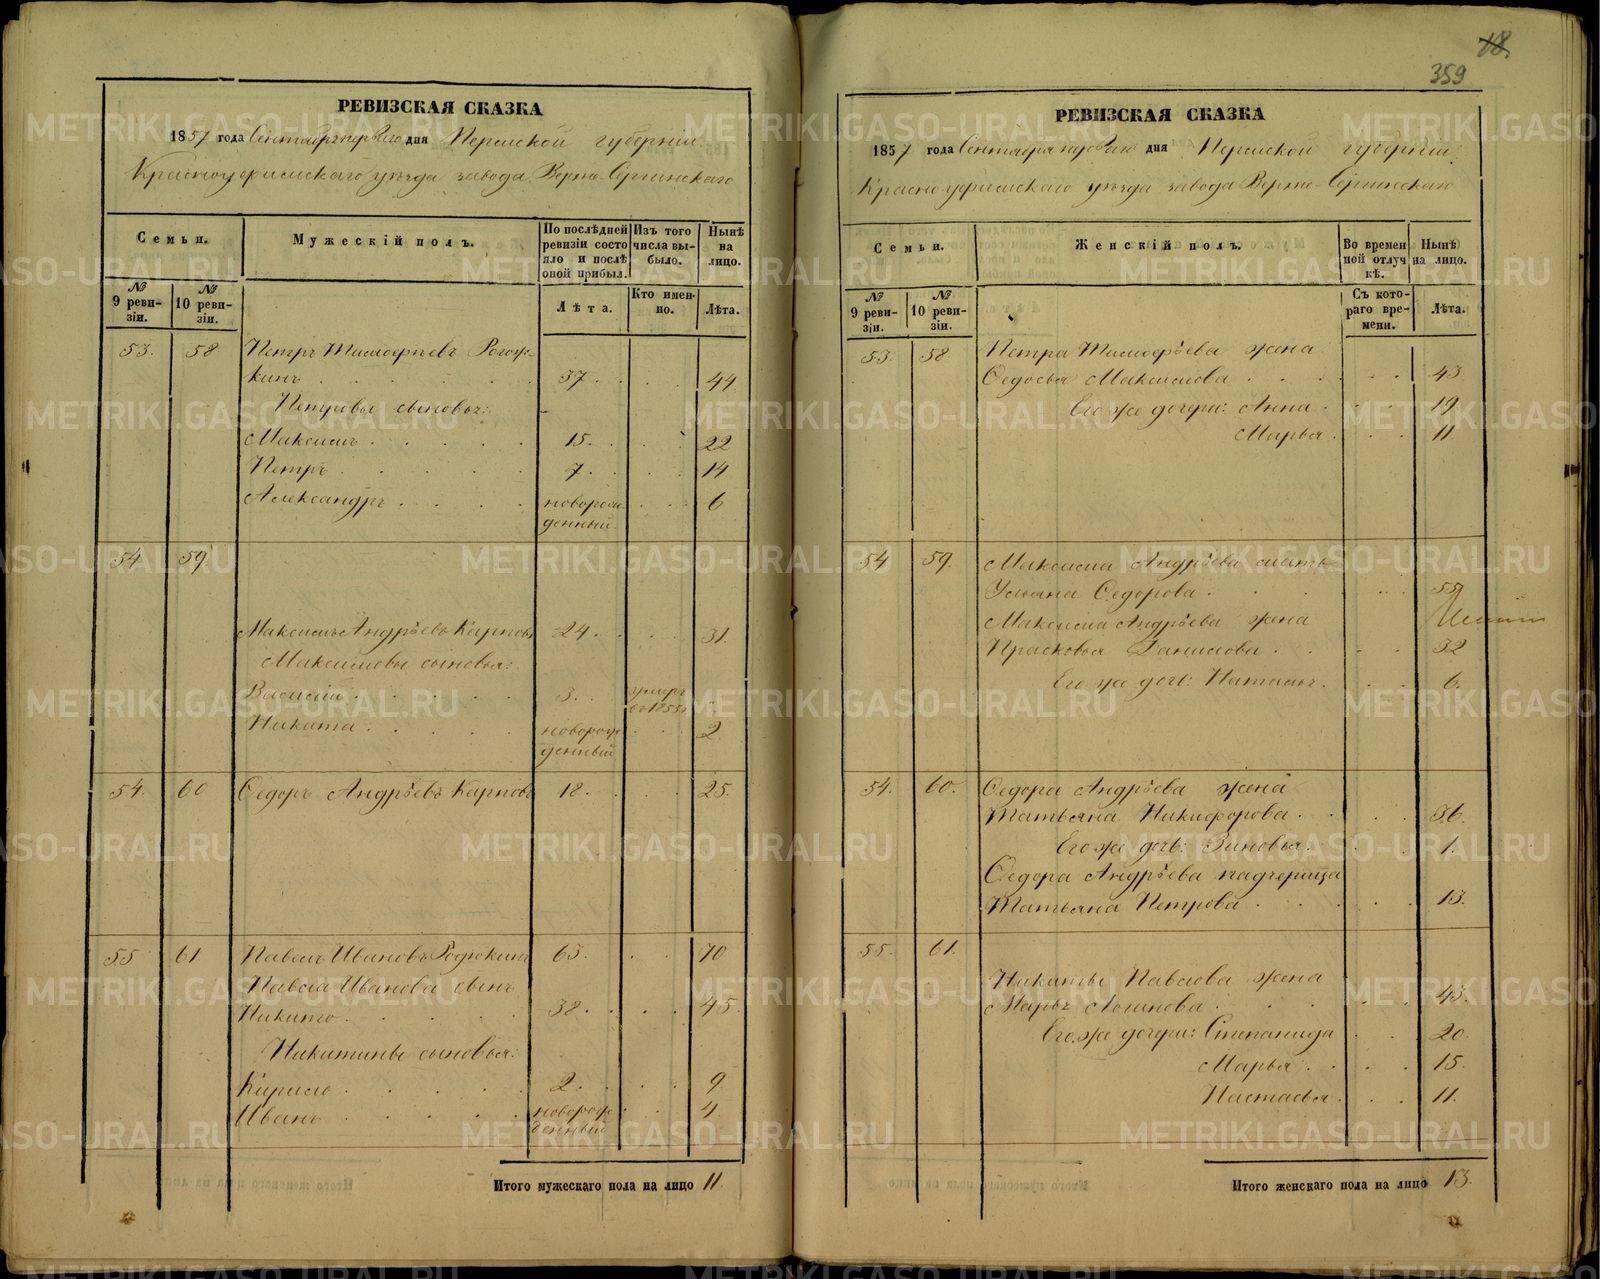 РЕВИЗСКАЯ СКАЗКА
1857 года Сентября первого дня Пермской губернии
Красноуфимскаго уѣзда завода Верхне-Сергинскаго
Семьи.
Мужескій полъ.
По послѣдней ревизіи состояло и послѣ оной прибыл.
Изъ того числа выбыло.
Нынѣ на лицо.
№ 9 ревизіи.
№ 10 ревизіи.
Лѣта.
Кто именно.
Лѣта.
53. 58 Петръ Тимофѣевъ Рогож-
кинъ 37. 44
Петровы сыновья:
Максимъ 15. 22
Петръ 7. 14
Александръ новорож- 6
денный
54 59
Максимъ Андрѣевъ Карповъ 24. 31.
Максимовы сыновья:
Василій 3. умеръ
Никита новорож- 2
денный
54. 60 Федоръ Андрѣевъ Карповъ 18. 25.
55 61 Павелъ Ивановъ 63. 70
Павла Иванова сынъ
Никита 38. 45.
Никитины сыновья:
Кирило 2. 9
Иванъ новорож- 4.
денный
Итого мужескаго пола на лицо 11
18.
359
РЕВИЗСКАЯ СКАЗКА
1857 года Сентября первого дня Пермской губерніи
Красноуфимскаго уѣзда завода Верхне-Сергинскаго
Семьи.
Женскій полъ.
Во временной отлучкѣ.
Нынѣ на лицо.
№ 9 ревизіи.
№ 10 ревизіи.
Съ котораго времени.
Лѣта.
53. 58. Петра Тимофѣева жена
Федосья Максимова 43
Его же дочери: Анна 19
Марья 11
54 59. Максима Андрѣева мать
Ульяна Федорова 55
Максима Андрѣева жена
Прасковья Данилова 32
Его же дочь: Наталья 6.
54. 60. Федора Андрѣева жена
Татьяна Никифорова 36.
Его же дочь: Зиновья 1.
Федора Андрѣева падчерица
Татьяна Петрова 13.
55. 61.
Никиты Павлова жена
Марья Логинова 43.
Его же дочери: Степанида 20
Марья 15.
Настасья 11.
Итого женскаго пола на лицо 13.
METRIKI.GASO-URAL.RU